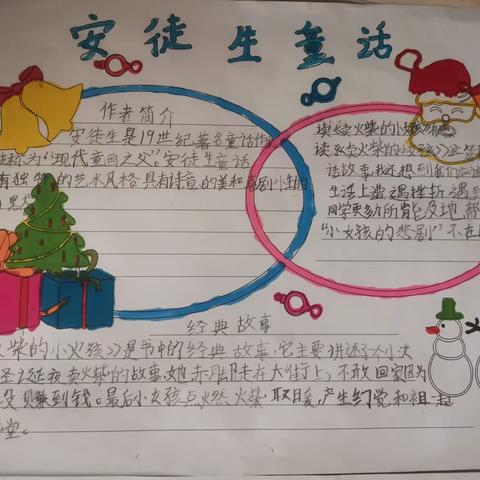 安徒生童话
作者简介
安徒生是19世纪著名童话作
称为"现代童画之父"安徒生童话
有独 的艺术风格具有诗意的美和喜剧小生的
读《卖火柴的小孩》
读《卖火柴的女孩》这
话故事我还想到我们应该
生活上遭遇挫折遇
同学更多所能及地帮
"小女孩的悲剧"不在
经典故事
火柴的小火孩》是书中的经典故事,它主要讲述了小女
圣诞夜卖火柴的故事,她赤脚走在大街上,不敢回家因为
没赚到钱。最后小女孩点燃火柴取暖,产生幻觉和祖 起
堂。